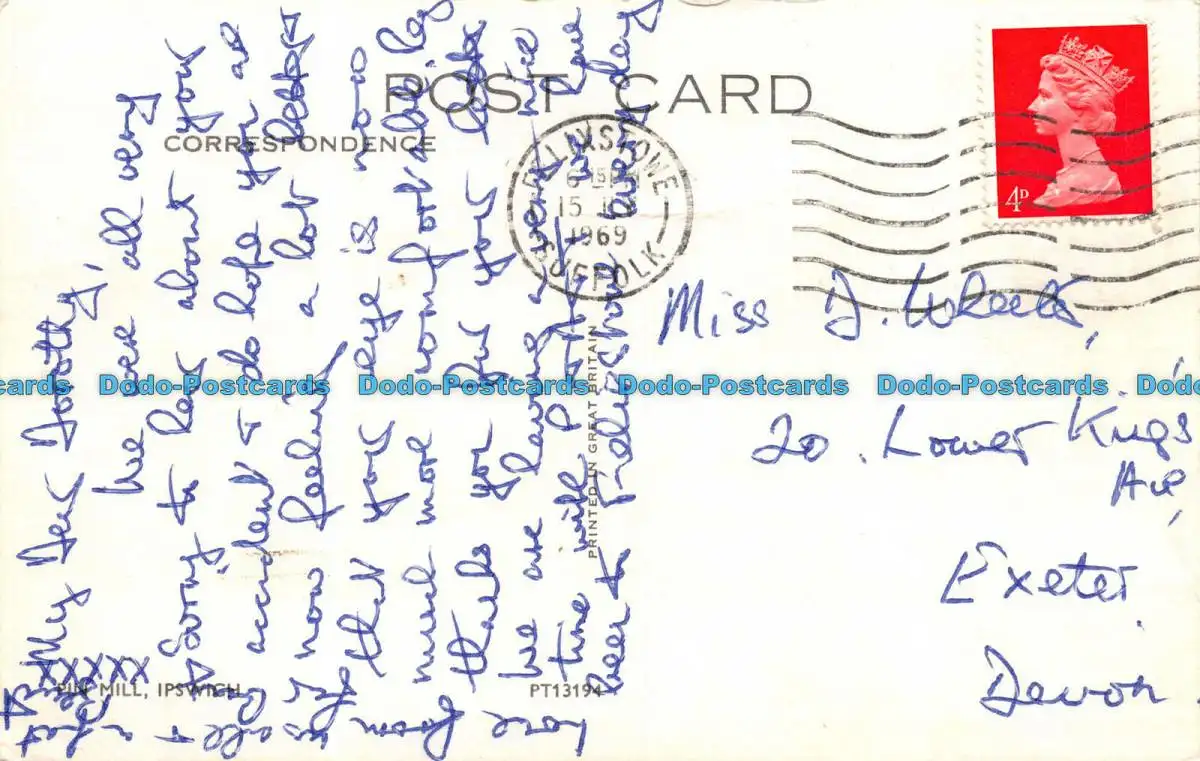 POST CARD
CORRESPONDENCE
FELIXSTOWE
6 15 PM
15
1969
SUFFOLK
4D
My Dear Dorothy,
We were all very
sorry to hear about your
accident & do hope you are
now feeling a lot better
& that your leg is now
much more comfortable
thanks for your letter
We are having a very nice
time with P
been to Felixstowe
love from
us all
XXXXX
Miss D. Wheeler,
20. Lower Kings
Ave,
Exeter.
Devon.
PRINTED IN GREAT BRITAIN
PIN MILL, IPSWICH
PT13194
Dodo-Postcards Dodo-Postcards Dodo-Postcards Dodo-Postcards Dodo-Postcards